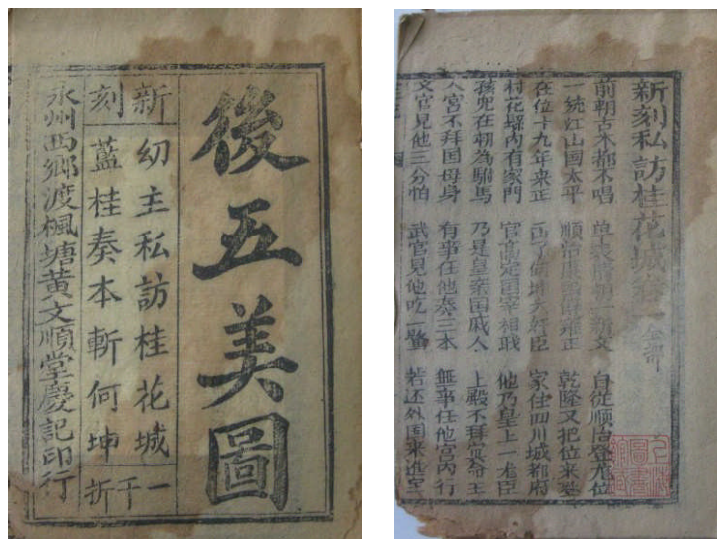 後五美圖
新刻
幼主私訪桂花城
藍桂奏本斬何坤
一千折
永州西鄉渡楓塘黃文順堂慶記印行
新刻私訪桂花城 全部
前朝古本都不唱 單表 朝一新文 自從順治登 位
一統江山國太平 順治康 雍正 乾隆又把位來登
在位十九年來正 出了 大奸臣 家住四川城都府
村花縣內有家門 官高定国宰相職 他乃皇上一老臣
孩兒在朝為駙馬 乃是皇亲国戚人 上殿不拜 王
入宮不拜国母身 有事任他奏三本 無事任他宫内行
文官見他三分怕 武官見他吃一驚 若还外国来進宝